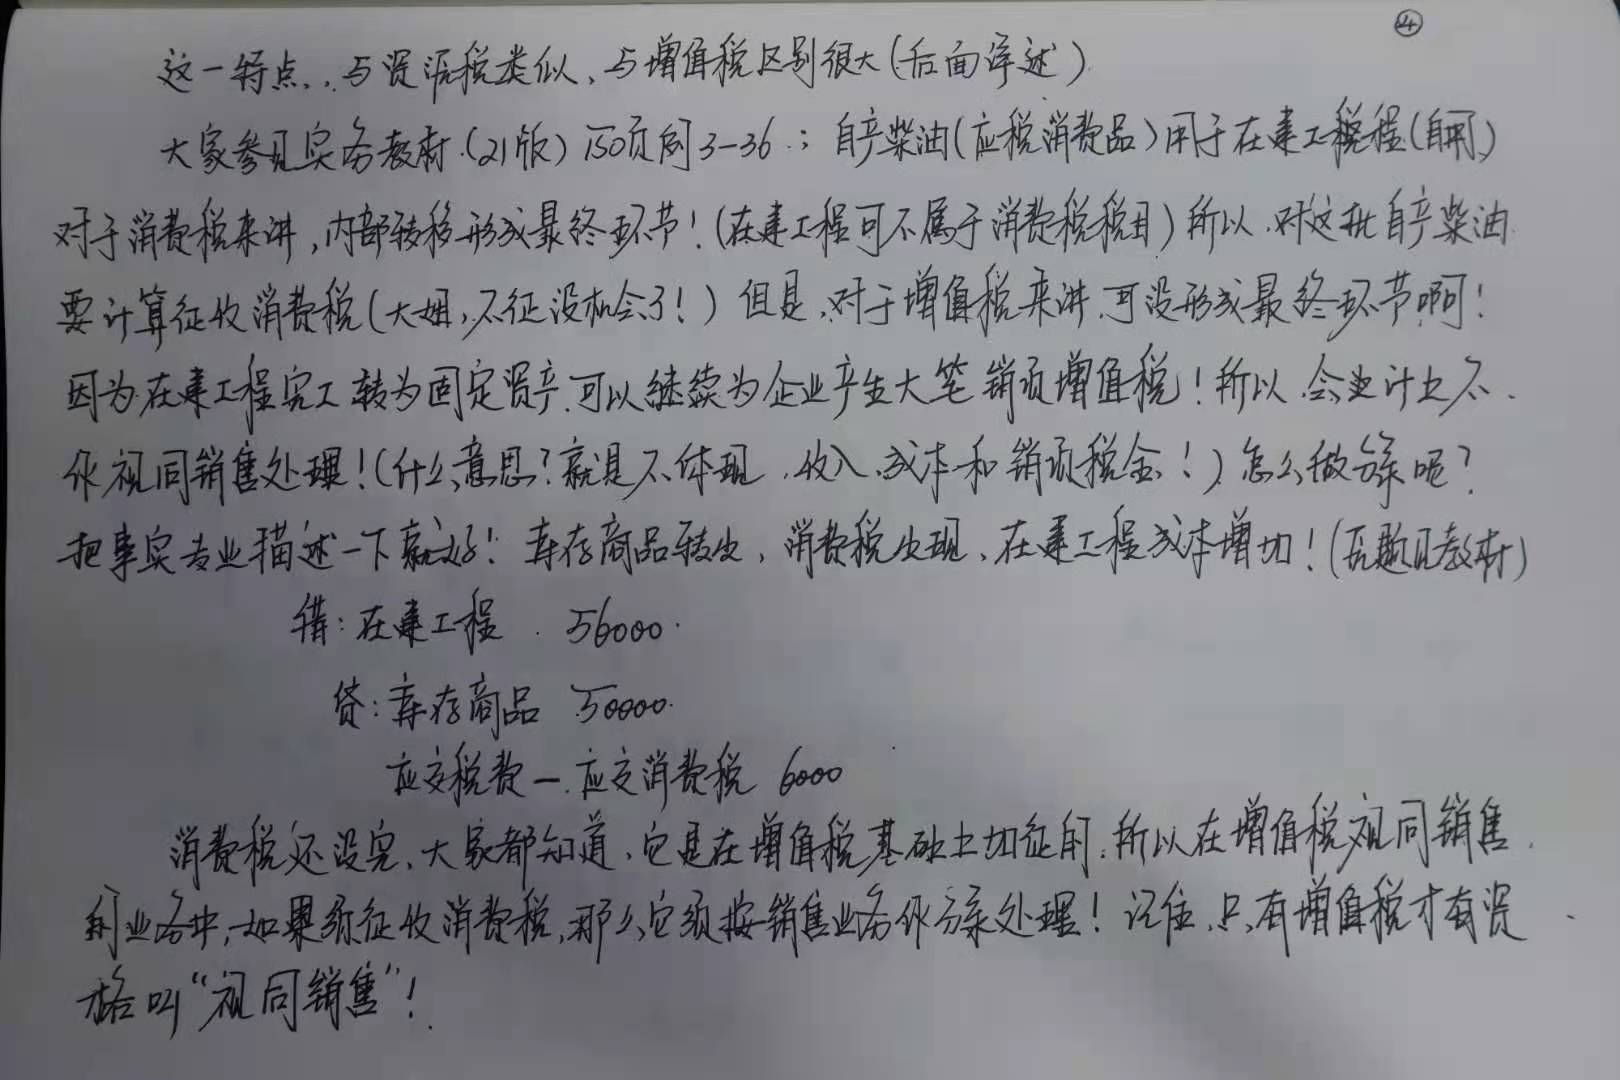 ④
这一特点,与资源税类似,与增值税区别很大(后面详述)
大家参见实务教材(21版)150页例3-36:自产柴油(应税消费品)用于在建工程(自用)
对于消费税来讲,内部转移形成最终环节!(在建工程可不属于消费税税目)所以,对这批自产柴油
要计算征收消费税(大姐,不征没机会了!)但是,对于增值税来讲,可没形成最终环节啊!
因为在建工程完工转为固定资产,可以继续为企业产生大笔销项增值税!所以,会计上不
作视同销售处理!(什么意思?就是不体现,收入、成本和销项税金!)怎么做分录呢?
把事实专业描述一下就好!库存商品转出,消费税出现,在建工程成本增加!(原题见教材)
借:在建工程 56000
贷:库存商品 50000
应交税费—应交消费税 6000
消费税还没完,大家都知道,它是在增值税基础上加征的,所以在增值税视同销售
的业务中,如果须征收消费税,那么它须按销售业务作分录处理!记住,只有增值税才有资
格叫“视同销售”!